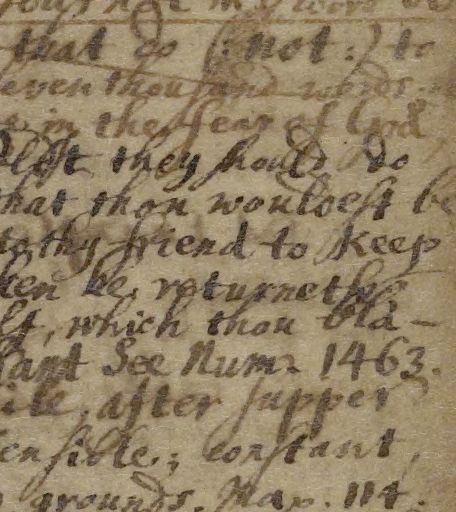 my word be
that do (: not :) to
even thousand words
in the fear of God
lest they should do
that thou wouldest be
to thy friend to keep
he returnethe
which thou bla-
See Num. 1463.
after supper
ensible; constant,
grounds. Nap. 114.